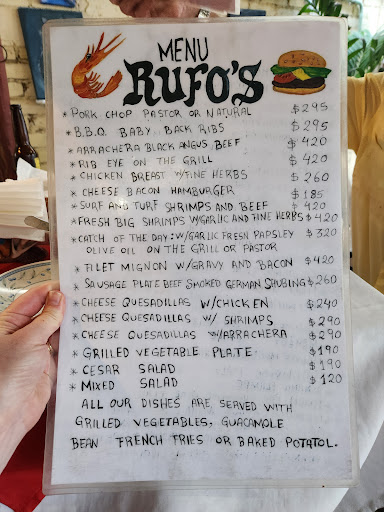 MENU
RUFO'S
* PORK CHOP PASTOR OR NATURAL $295
* B.B.Q. BABY BACK RIBS $295
* ARRACHERA BLACK ANGUS BEEF $420
* RIB EYE ON THE GRILL $420
* CHICKEN BREAST W/FINE HERBS $260
* CHEESE BACON HAMBURGER $185
* SURF AND TURF SHRIMPS AND BEEF $420
* FRESH BIG SHRIMPS W/GARLIC AND FINE HERBS $420
* CATCH OF THE DAY: W/GARLIC FRESH PARSLEY $320
OLIVE OIL ON THE GRILL OR PASTOR
* FILET MIGNON W/GRAVY AND BACON $420
* SAUSAGE PLATE BEEF SMOKED GERMAN SHUBING $260
* CHEESE QUESADILLAS W/CHICKEN $240
* CHEESE QUESADILLAS W/ SHRIMPS $290
* CHEESE QUESADILLAS W/ARRACHERA $290
* GRILLED VEGETABLE PLATE $190
* CESAR SALAD $190
* MIXED SALAD $120
ALL OUR DISHES ARE SERVED WITH
GRILLED VEGETABLES, GUACAMOLE
BEAN FRENCH FRIES OR BAKED POTATOL.